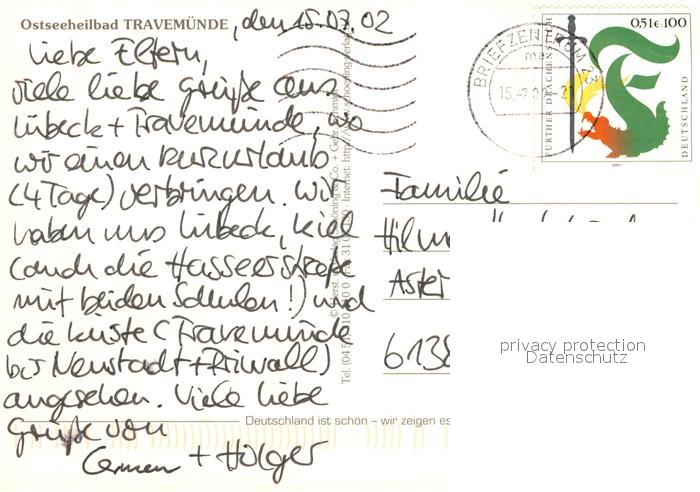 Ostseeheilbad TRAVEMÜNDE, den 15.07.02
Liebe Eltern,
viele liebe Grüße aus
Lübeck + Travemünde, wo
wir einen Kurzurlaub
(4 Tage) verbringen. Wir
haben uns Lübeck, Kiel
(auch die Hasseer Straße
mit beiden Schulen!) und
die Küste (Travemünde
bis Neustadt + Priwall)
angesehen. Viele liebe
Grüße von
Carmen + Holger
BRIEFZENTRUM 23
15.-7.02-21
0,51€ 100
FURTHER DRACHENSTICH
DEUTSCHLAND
2001
Familie
Hilm
Aster
6138
privacy protection
Datenschutz
Deutschland ist schön – wir zeigen es